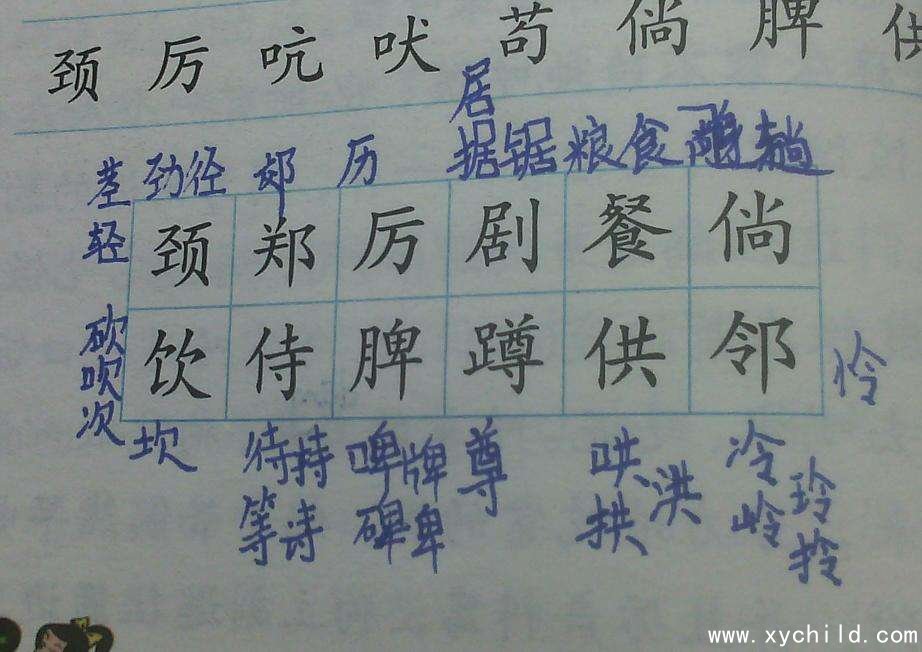 颈 厉 吭 吠 苟 倘 脾 供
居
茎 劲 径 郊 历 据 锯 粮 食 趟
轻
颈 郑 厉 剧 餐 倘
砍 吹 次
饮 侍 脾 蹲 供 邻
怜
坎 待 持 啤 牌 尊 哄 洪 冷 玲
等 诗 碑 婢 拱 岭 拎
www.xychild.com